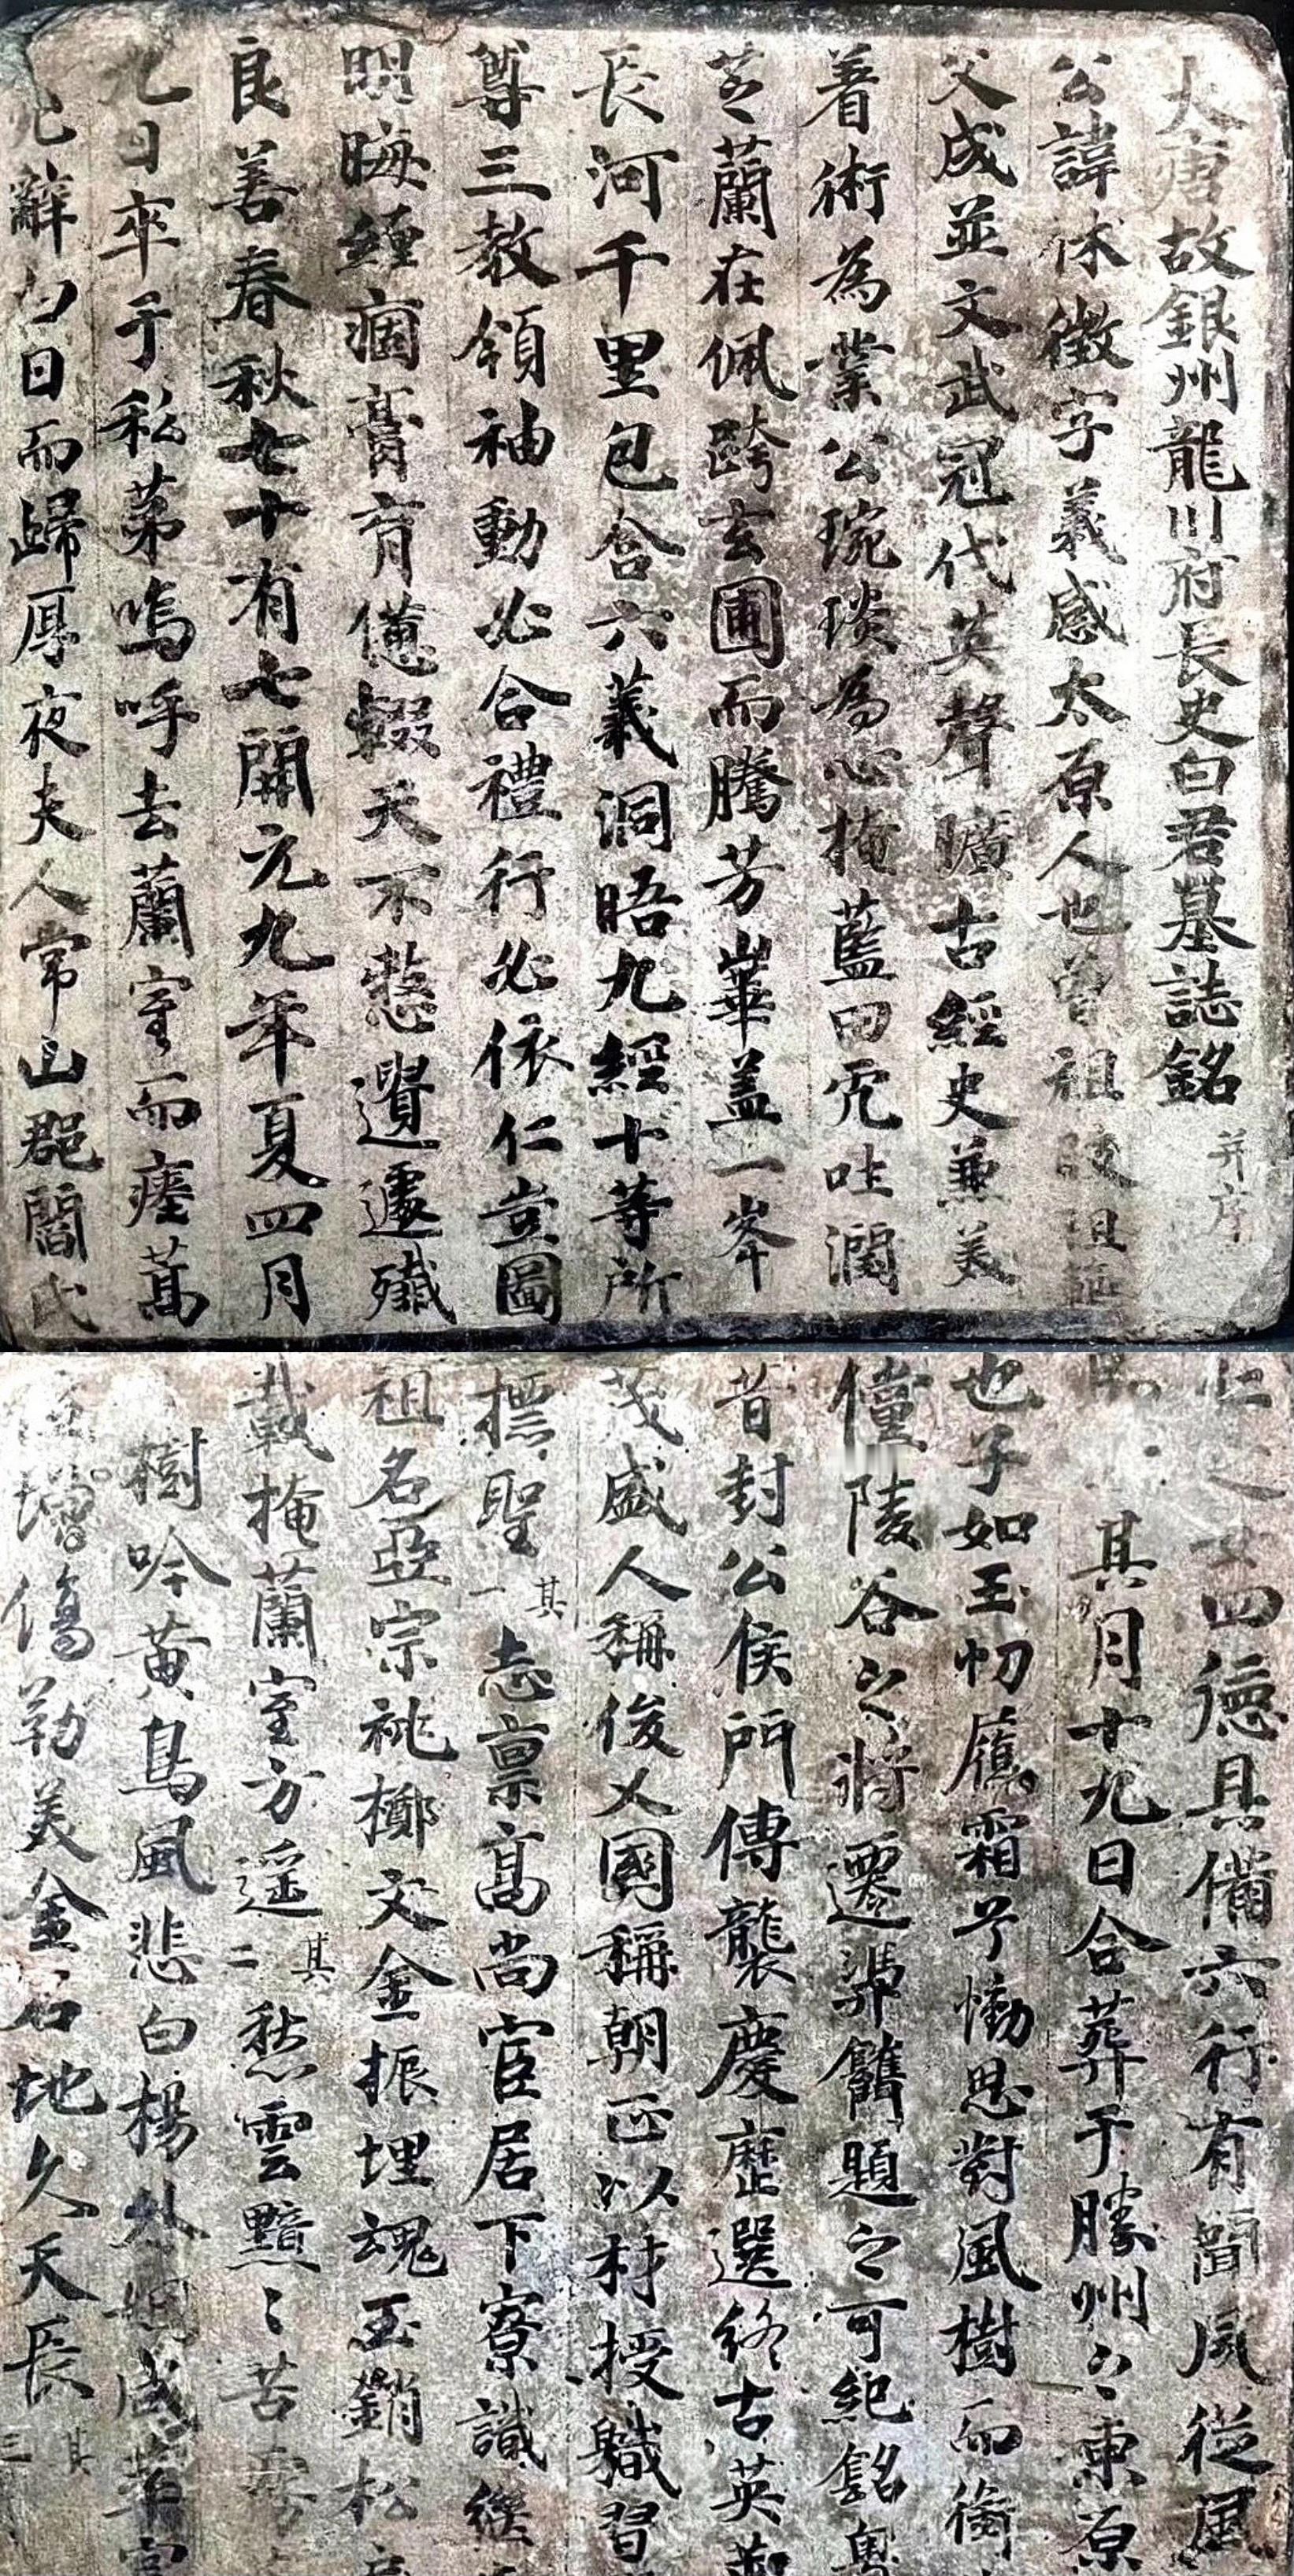 大唐故銀州龍川府長史白君墓誌銘 并序
公諱休徵字義感太原人也曾祖陵祖
父成並文武冠代英聲曠古經史兼美
着術為業公琬琰為心掩藍田而吐潤
芝蘭在佩跨玄圃而騰芳崋蓋一峯
長河千里包含六義洞晤九經十等所
尊三教領袖動必合禮行必依仁豈圖
明晦纏痼膏肓僁輟天不憖遺遽殲
良善春秋七十有七開元九年夏四月
九日卒于私苐嗚呼去蘭室而瘞蒿
辭白日而歸厚夜夫人常山郡閻氏
之 四德具備六行有聞夙從風
其月十九日合葬于勝州之東原
也子如玉切履霜兮慟思對風樹而銜
僮陵谷之將遷㳙舊題之可紀銘粵
昔封公侯門傳襲慶歷選終古英
茂盛人稱俊乂國稱朝正以材授軄習
摽聖 其一 志稟高尚宦居下寮識
祖名亞宗祧擲文金振埋魂玉銷松
載掩蘭室方遥 其二 愁雲黯〻苦
樹吟黄鳥風悲白楊
增傷勒美金石地久天長 其三